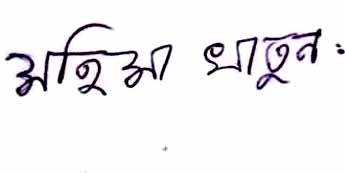 অহিআ খাতুন: